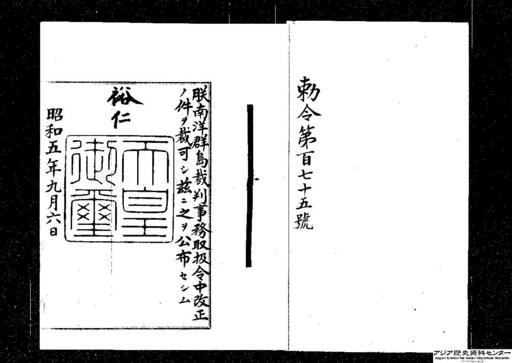 勅令第百七十五號
朕南洋群島裁判事務取扱令中改正
ノ件ヲ裁可シ茲ニ之ヲ公布セシム
裕仁
天皇
御璽
昭和五年九月六日
アジア歴史資料センター
Japan Center for Asian Historical Records